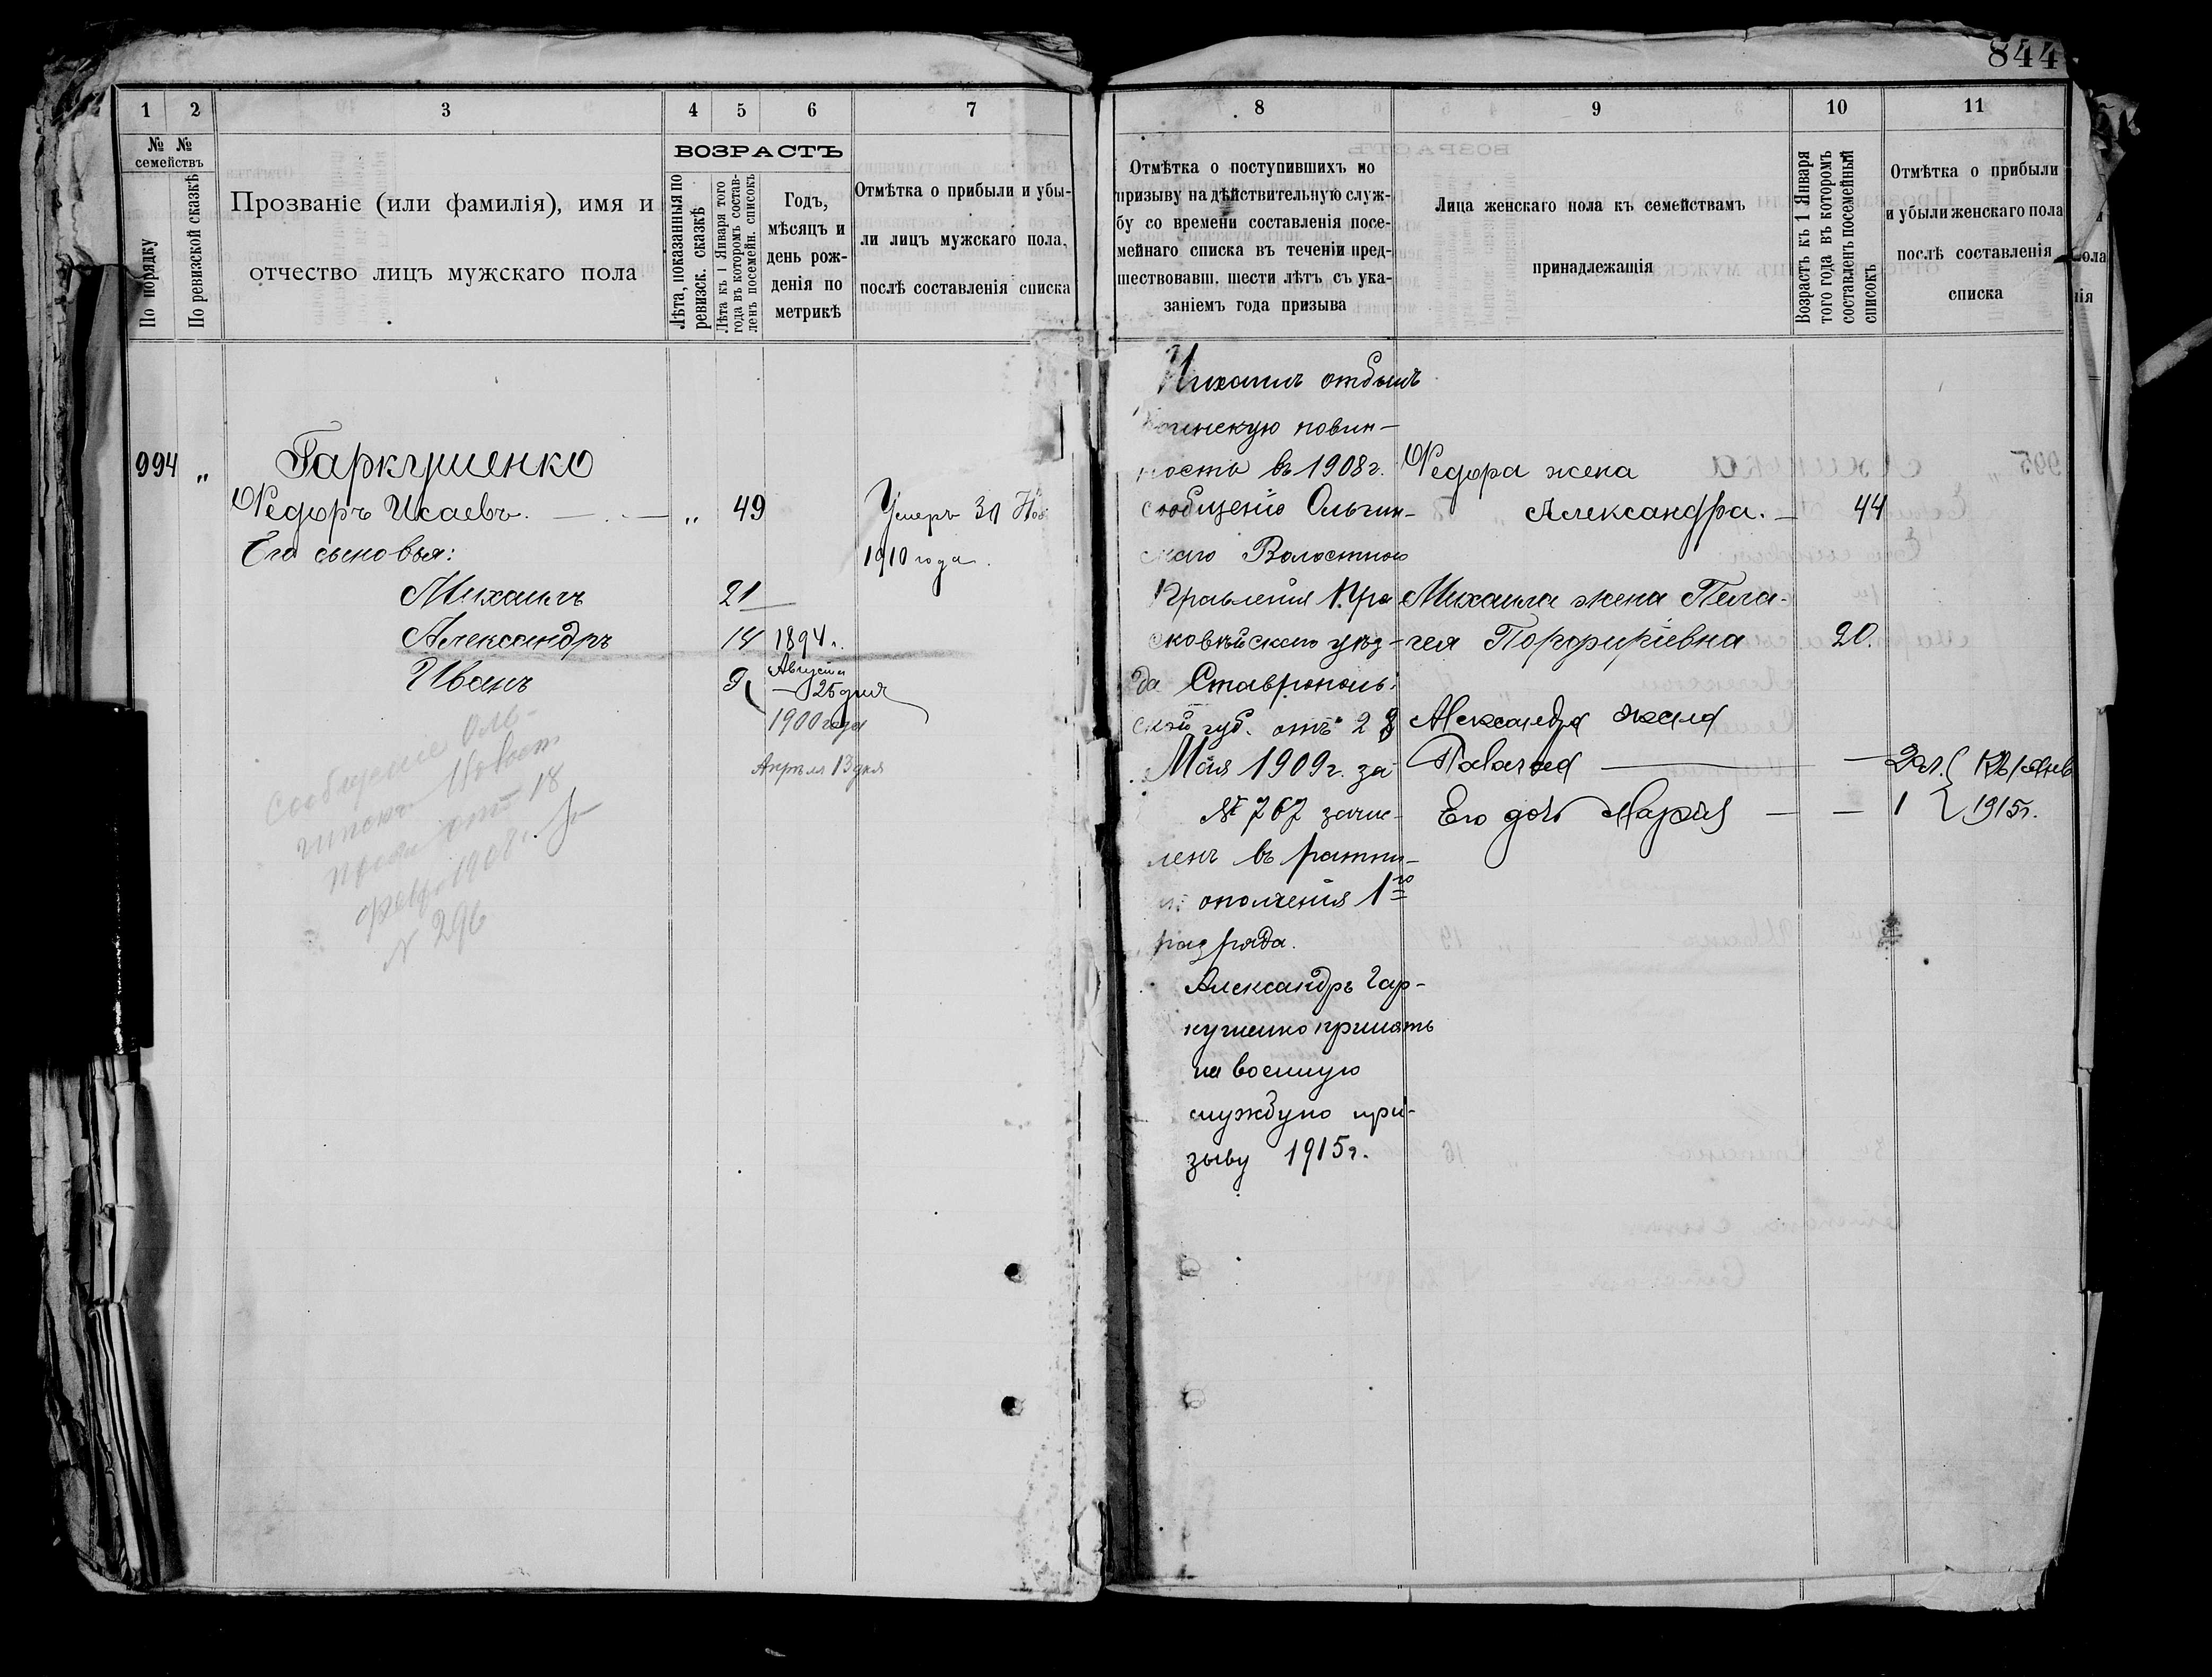 844
1 2 3 4 5 6 7
№ №
семействъ
По порядку
По ревизской сказкѣ
Прозваніе (или фамилія), имя и
отчество лицъ мужскаго пола
ВОЗРАСТЪ
Лѣта, показанныя по
ревизск. сказкѣ
Лѣта къ 1 Января того
года въ которомъ состав-
ленъ посемейн. списокъ
Годъ,
мѣсяцъ и
день рож-
денія по
метрикѣ
Отмѣтка о прибыли и убы-
ли лицъ мужскаго пола,
послѣ составленія списка
994 " Гаркушенко
Федоръ Исаевъ. — " 49 Умеръ 31
Его сыновья: 1910 года.
Михаилъ 21
Александръ 14 1894 г.
Августа
Иванъ 9 25 дня
1900 года
Апрѣля 13 дня
Сообщеніе
отъ 18
1908 г.
N 296
8 9 10 11
Отмѣтка о поступившихъ по
призыву на дѣйствительную служ-
бу со времени составленія посе-
мейнаго списка въ теченіи пред-
шествовавш. шести лѣтъ съ ука-
заніемъ года призыва
Лица женскаго пола къ семействамъ
принадлежащія
Возрастъ къ 1 Января
того года въ которомъ
составленъ посемейный
списокъ
Отмѣтка о прибыли
и убыли женскаго пола
послѣ составленія
списка
Михаилъ отбылъ
воинскую повин-
ность въ 1908 г.
сообщенію Ольгин-
скаго Волостного
Правленія Пра
сковѣйскаго уѣз-
да Ставрополь-
ской губ. отъ 28
Мая 1909 г. за
№ 767 зачис-
ленъ въ ратни-
ки ополченія 1го
разряда.
Александръ Гар-
кушенко принятъ
на военную
службу по при-
зыву 1915 г.
Федора жена
Александра. — 44
Михаила жена Пела-
гея Порфиріевна 20.
Александра жена
— — 1915 г.
Его дочь Марія — — 1